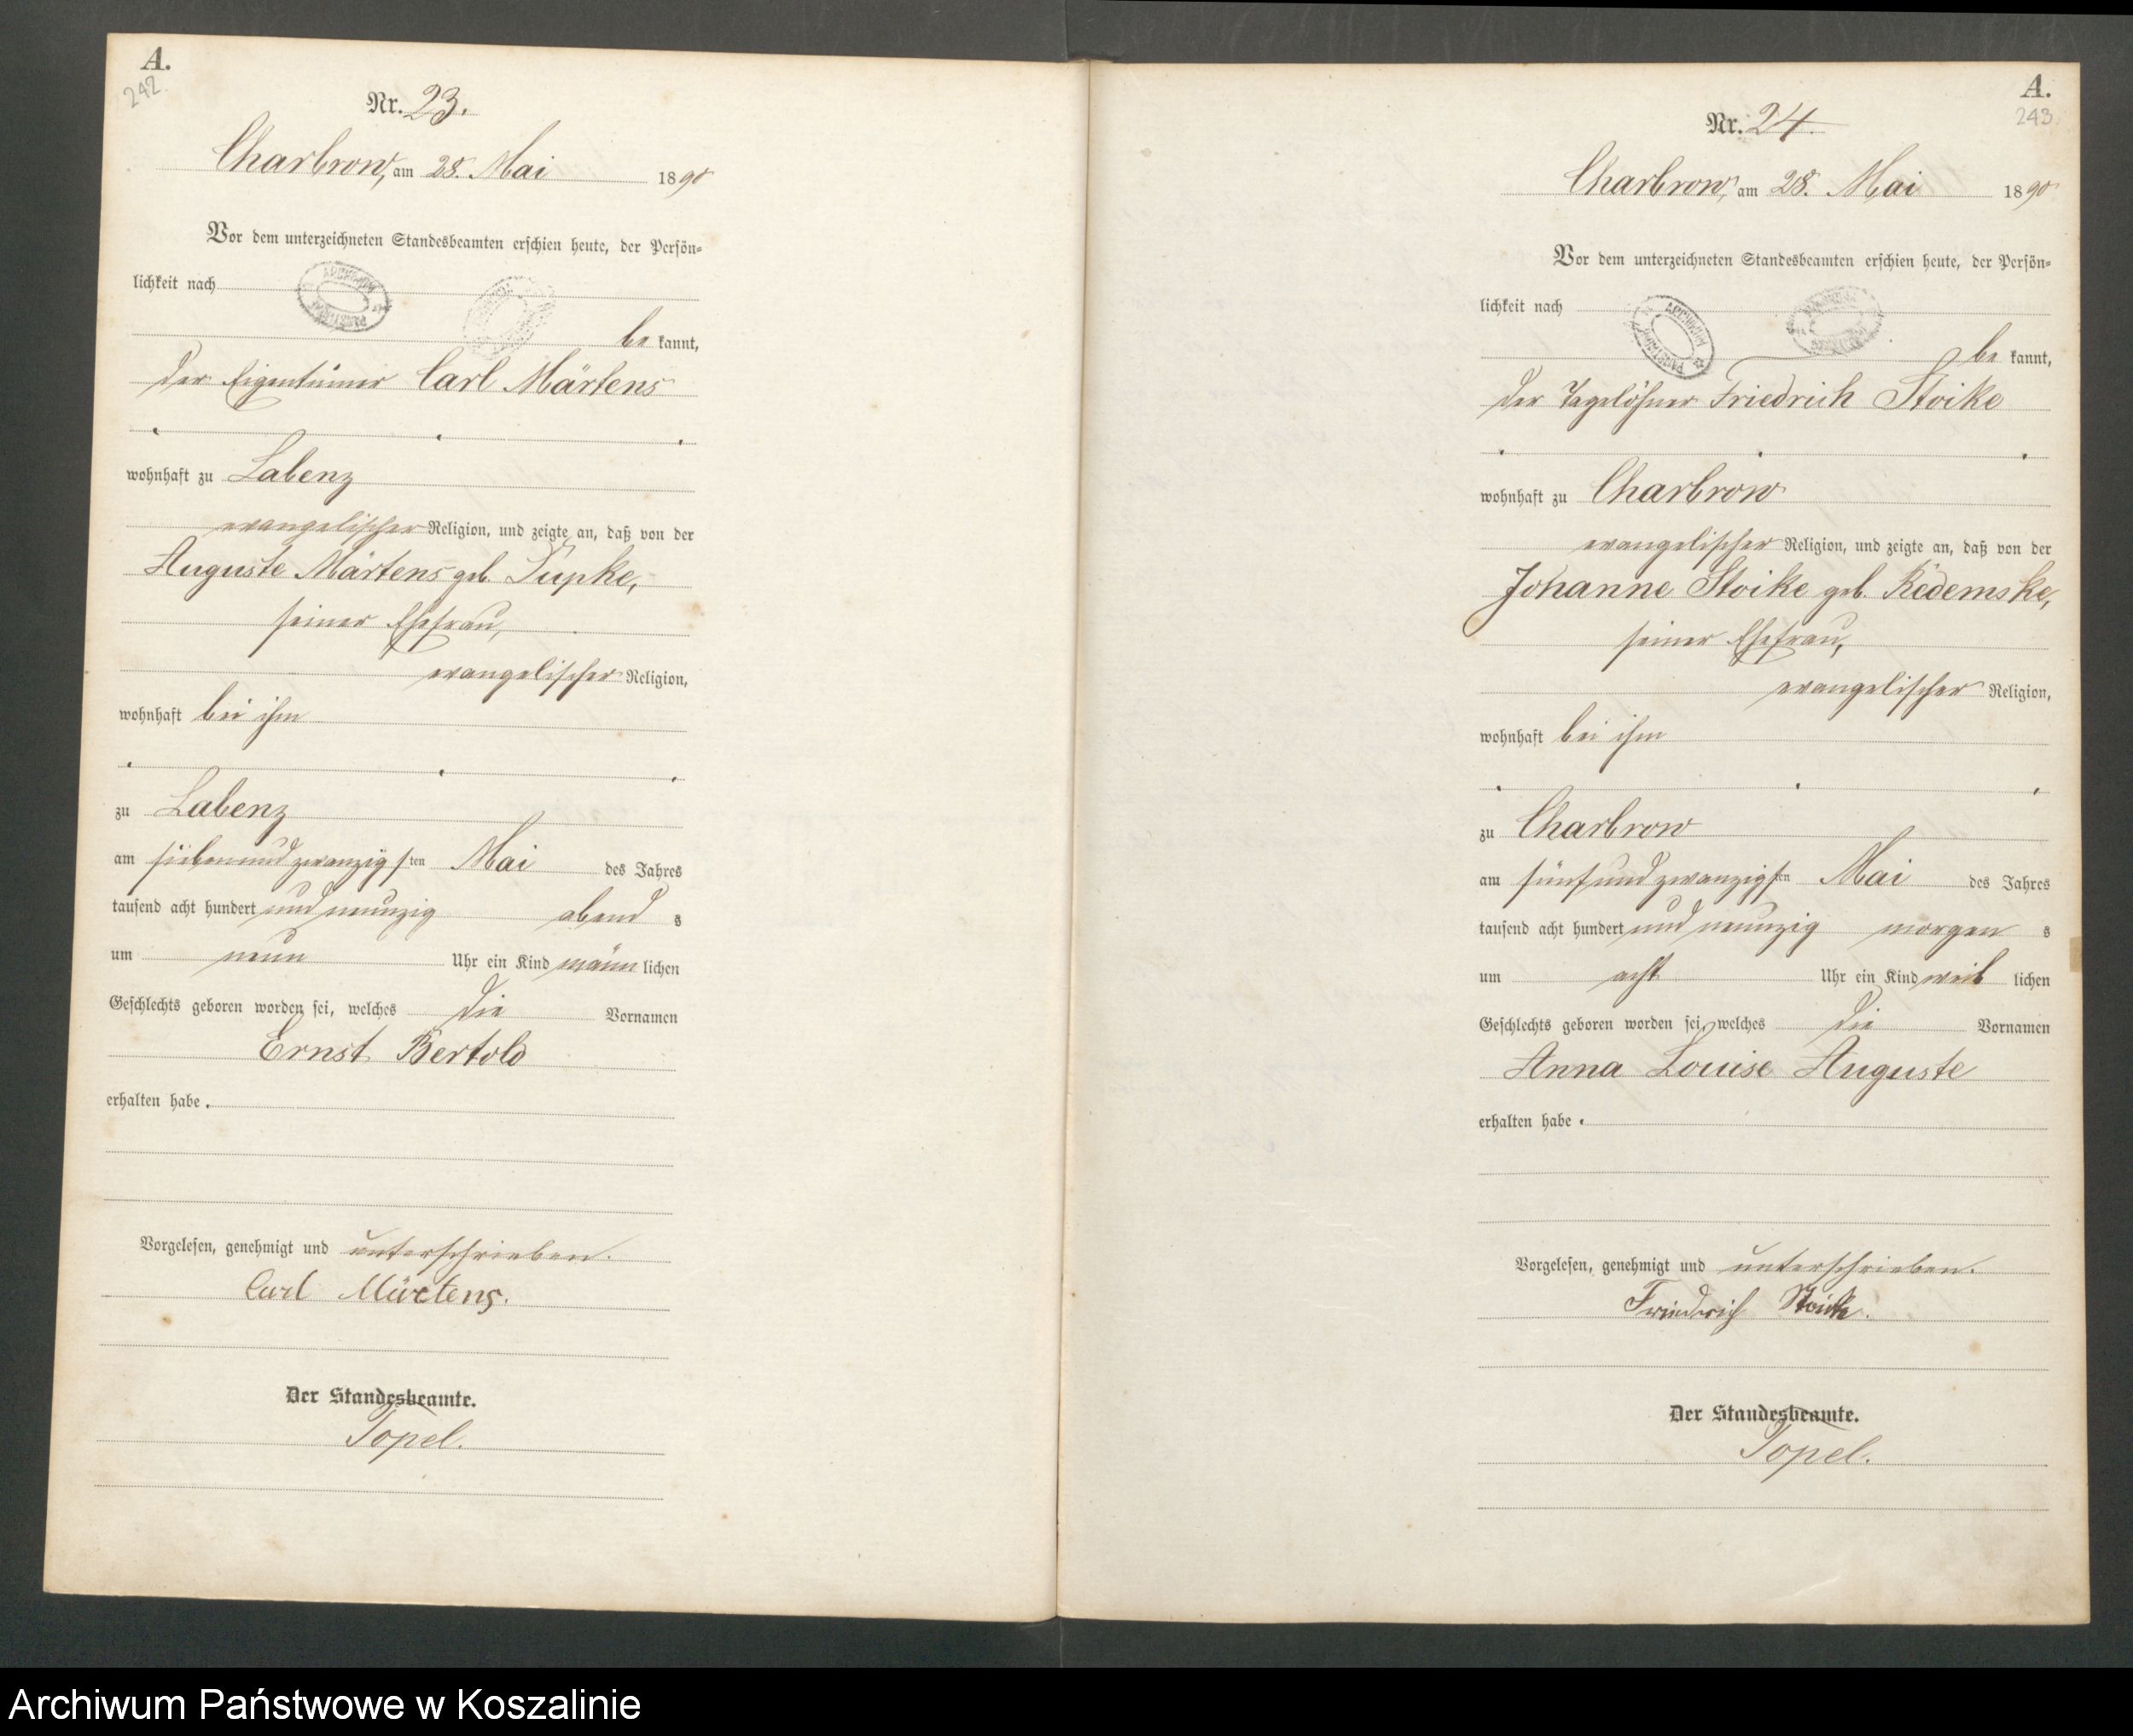 A.
242
Nr. 23.
Charbrow, am 28. Mai 1890
Vor dem unterzeichneten Standesbeamten erschien heute, der Persön-
lichkeit nach
be kannt,
der Eigentümer Carl Märtens
wohnhaft zu Labenz
evangelischer Religion, und zeigte an, daß von der
Auguste Märtens geb. Pupke,
seiner Ehefrau,
evangelischer Religion,
wohnhaft bei ihm
zu Labenz
am siebenundzwanzigsten Mai des Jahres
tausend acht hundert und neunzig abend s
um neun Uhr ein Kind männ lichen
Geschlechts geboren worden sei, welches die Vornamen
Ernst Bertold
erhalten habe.
Vorgelesen, genehmigt und unterschrieben.
Carl Märtens.
Der Standesbeamte.
Topel.
A.
243
Nr. 24.
Charbrow, am 28. Mai 1890
Vor dem unterzeichneten Standesbeamten erschien heute, der Persön-
lichkeit nach
be kannt,
der Tagelöhner Friedrich Stoike
wohnhaft zu Charbrow
evangelischer Religion, und zeigte an, daß von der
Johanne Stoike geb. Redemske,
seiner Ehefrau,
evangelischer Religion,
wohnhaft bei ihm
zu Charbrow
am fünfundzwanzigsten Mai des Jahres
tausend acht hundert und neunzig morgen s
um acht Uhr ein Kind weib lichen
Geschlechts geboren worden sei, welches die Vornamen
Anna Louise Auguste
erhalten habe.
Vorgelesen, genehmigt und unterschrieben.
Friedrich Stoike.
Der Standesbeamte.
Topel.
Archiwum Państwowe w Koszalinie